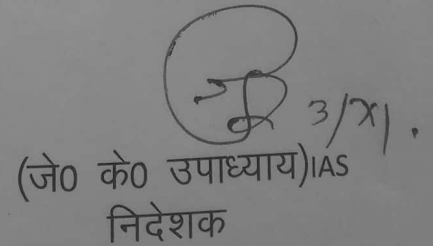 3/XI.
(जे0 के0 उपाध्याय)IAS
निदेशक